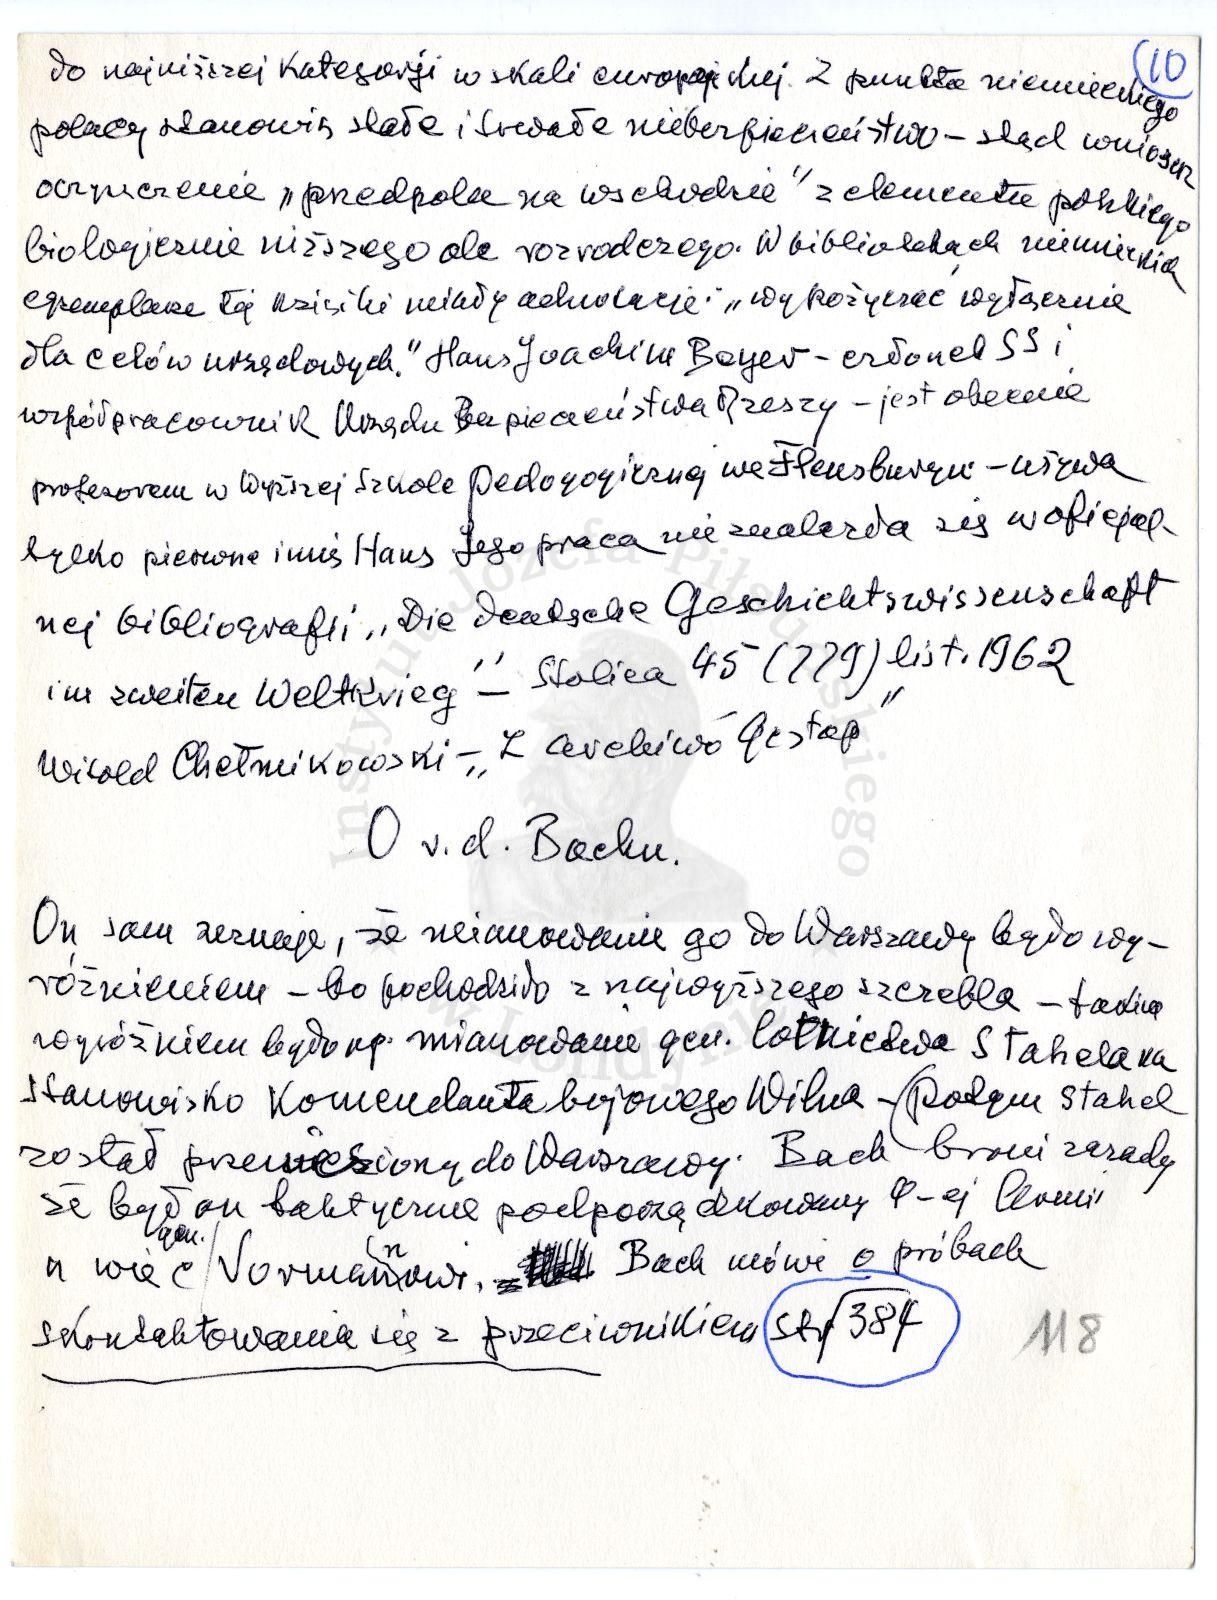 10
do najniższej kategorji w skali europejskiej. Z punktu niemieckiego
polacy stanowią stałe i trwałe niebezpieczeństwo – stąd wniosek
oczyszczenie „przedpola na wschodzie" z elementu polskiego
biologicznie niższego ale rozrodczego. W bibliotekach niemieckich
egzemplarze tej książki miały adnotację: „wypożyczać wyłącznie
dla celów urzędowych." Hans Joachim Beyer – członek SS i
współpracownik Urzędu Bezpieczeństwa Rzeszy – jest obecnie
profesorem w Wyższej Szkole Pedagogicznej we Flensburgu – używa
tylko pierwsze imię Hans Jego praca nie znalazła się w oficjal-
nej bibliografii „Die deutsche Geschichtswissenschaft
im zweiten Weltkrieg" – Stolica 45 (779) list. 1962
Witold Chełmikowski – „Z archiwó Gestap"
O v. d. Bachu.
On sam zeznaje, że mianowanie go do Warszawy było wy-
różnieniem – bo pochodziło z najwyższego szczebla – takim
wyróżnieni było np. mianowanie gen. lotnictwa Stahela na
stanowisko Komendanta bojowego Wilna – (potym Stahel
został przeniesiony do Warszawy. Bach broni zasady
że był on taktycznie podporządkowany 9-ej Armii
a więc gen. Vormannowi. Bach mówi o próbach
skontaktowania się z przeciwnikiem str 384
118
Instytut Józefa Piłsudskiego
w Londynie